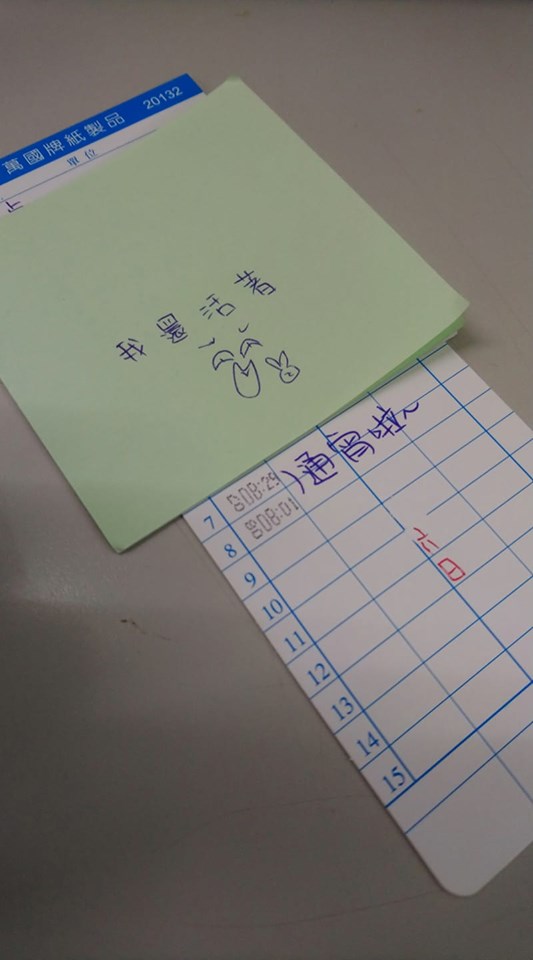 萬國牌紙製品 20132
單位
我還活著
7 07 08:29 通宵啦~
8 08 08:01
9
10 六日
11
12
13
14
15